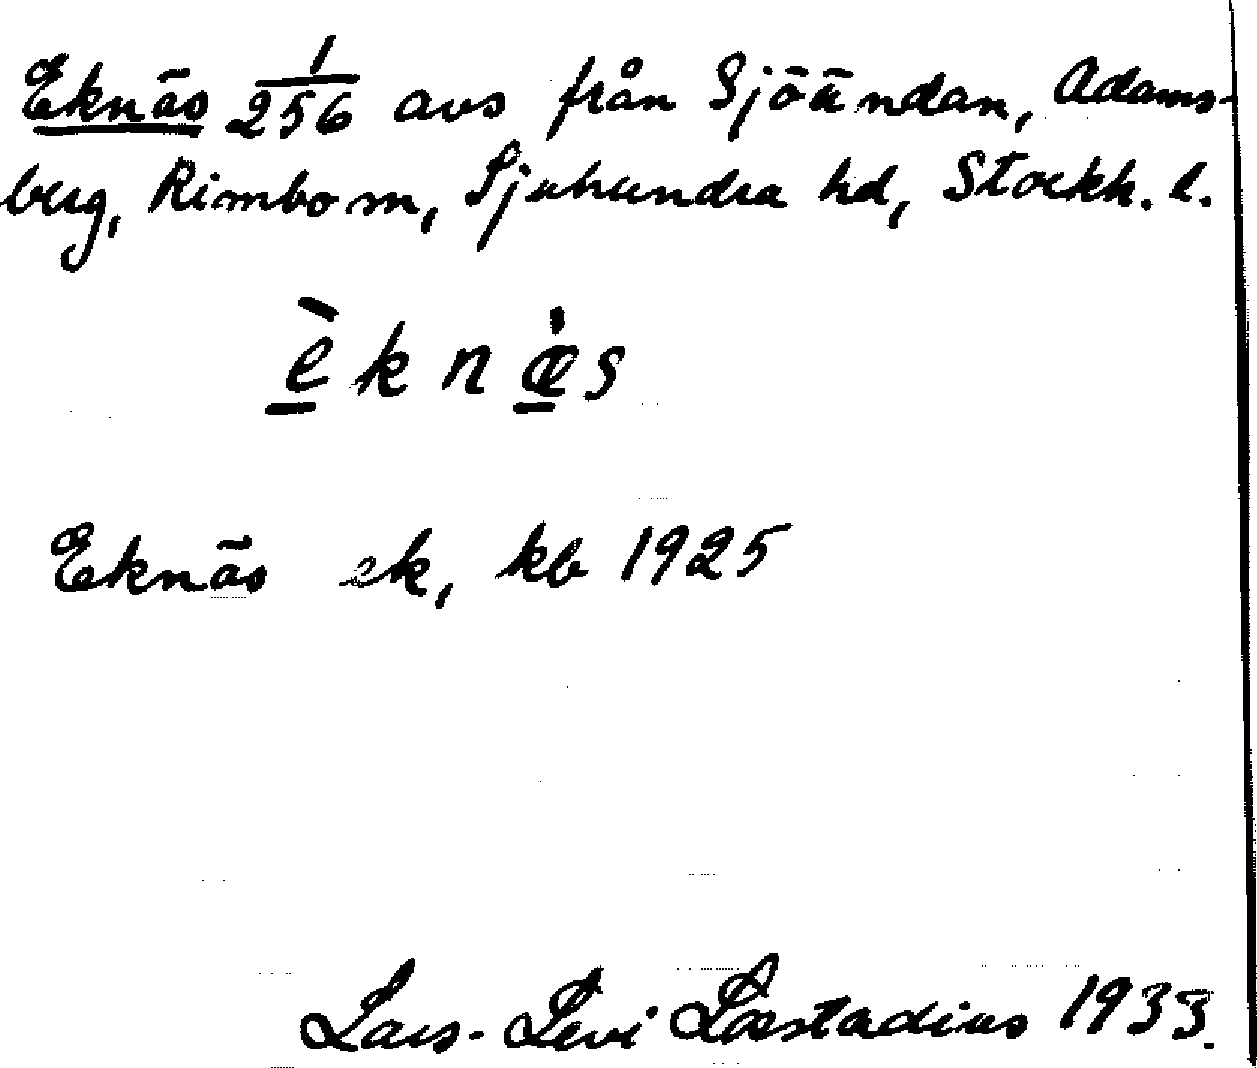 Eknäs 1/256 avs från Sjöändan, Adams-
berg, Rimbo sn, Sjuhundra hd, Stockh. l.
è̱knæ̱̀s
Eknäs ek, kb 1925
Lars-Levi Læstadius 1933.